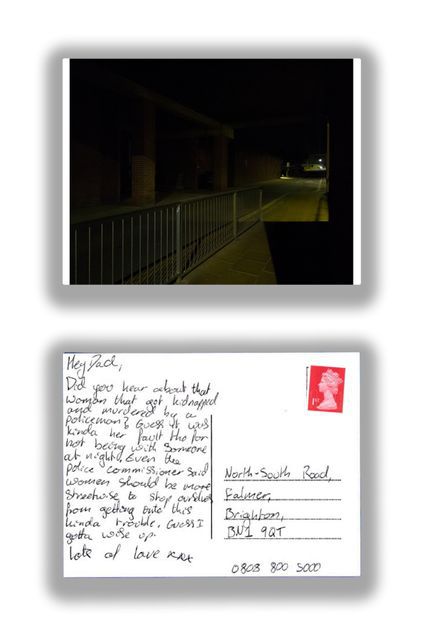 Hey Dad,
Did you hear about that
woman that got kidnapped
and murdered by a
policeman? Guess it was
kinda her fault tho for
not being with someone
at night. Even the
police commissioner said
women should be more
streetwise to stop ourselves
from getting into this
kinda trouble. Guess I
gotta wise up.
Lots of love xxx
1st
North-South Road,
Falmer,
Brighton,
BN1 9QT
0808 800 5000